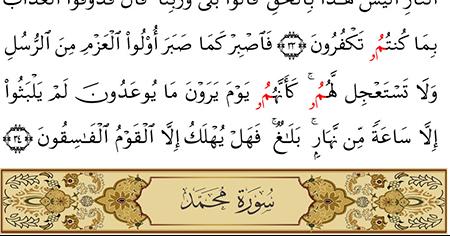 النَّارِ أَلَيْسَ هَٰذَا بِالْحَقِّ قَالُوا بَلَىٰ وَرَبِّنَا قَالَ فَذُوقُوا الْعَذَابَ
بِمَا كُنتُمُۥ تَكْفُرُونَ ٣٣ فَاصْبِرْ كَمَا صَبَرَ أُوْلُوا الْعَزْمِ مِنَ الرُّسُلِ
وَلَا تَسْتَعْجِل لَّهُمُۥ كَأَنَّهُمُۥ يَوْمَ يَرَوْنَ مَا يُوعَدُونَ لَمْ يَلْبَثُوا
إِلَّا سَاعَةً مِّن نَّهَارٍ بَلَاغٌ فَهَلْ يُهْلَكُ إِلَّا الْقَوْمُ الْفَاسِقُونَ ٣٤
سُورَةُ مُحَمَّد